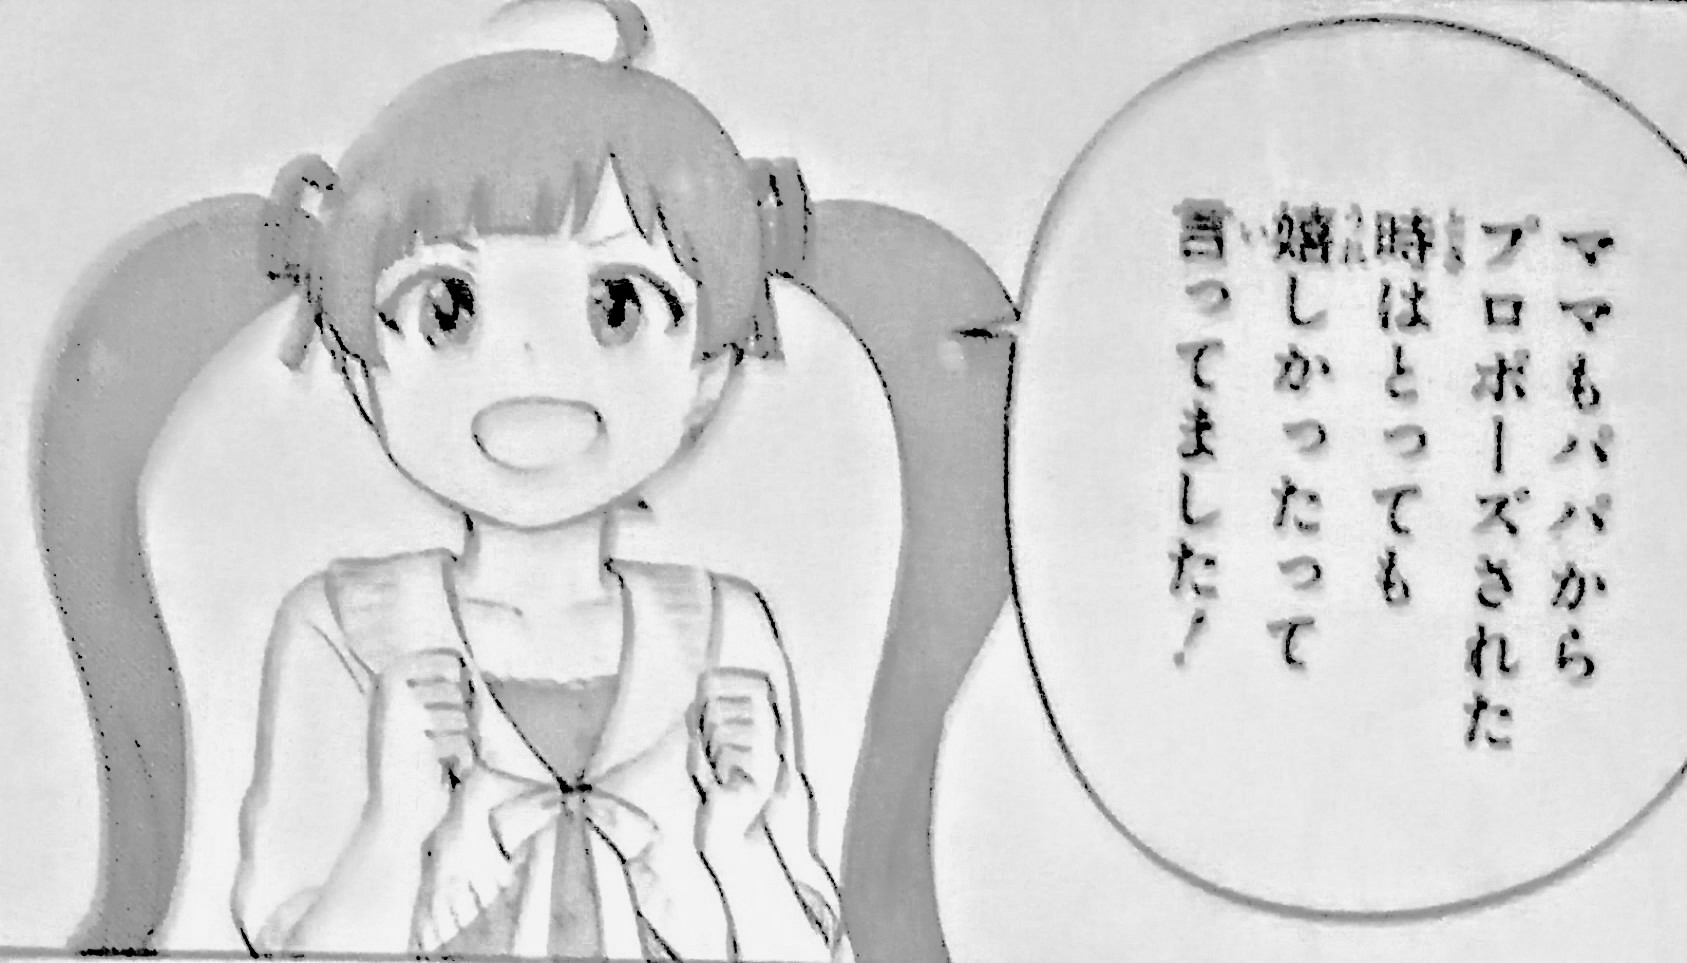 ママもパパから
プロポーズされた
時はとっても
嬉しかったって
言ってました!